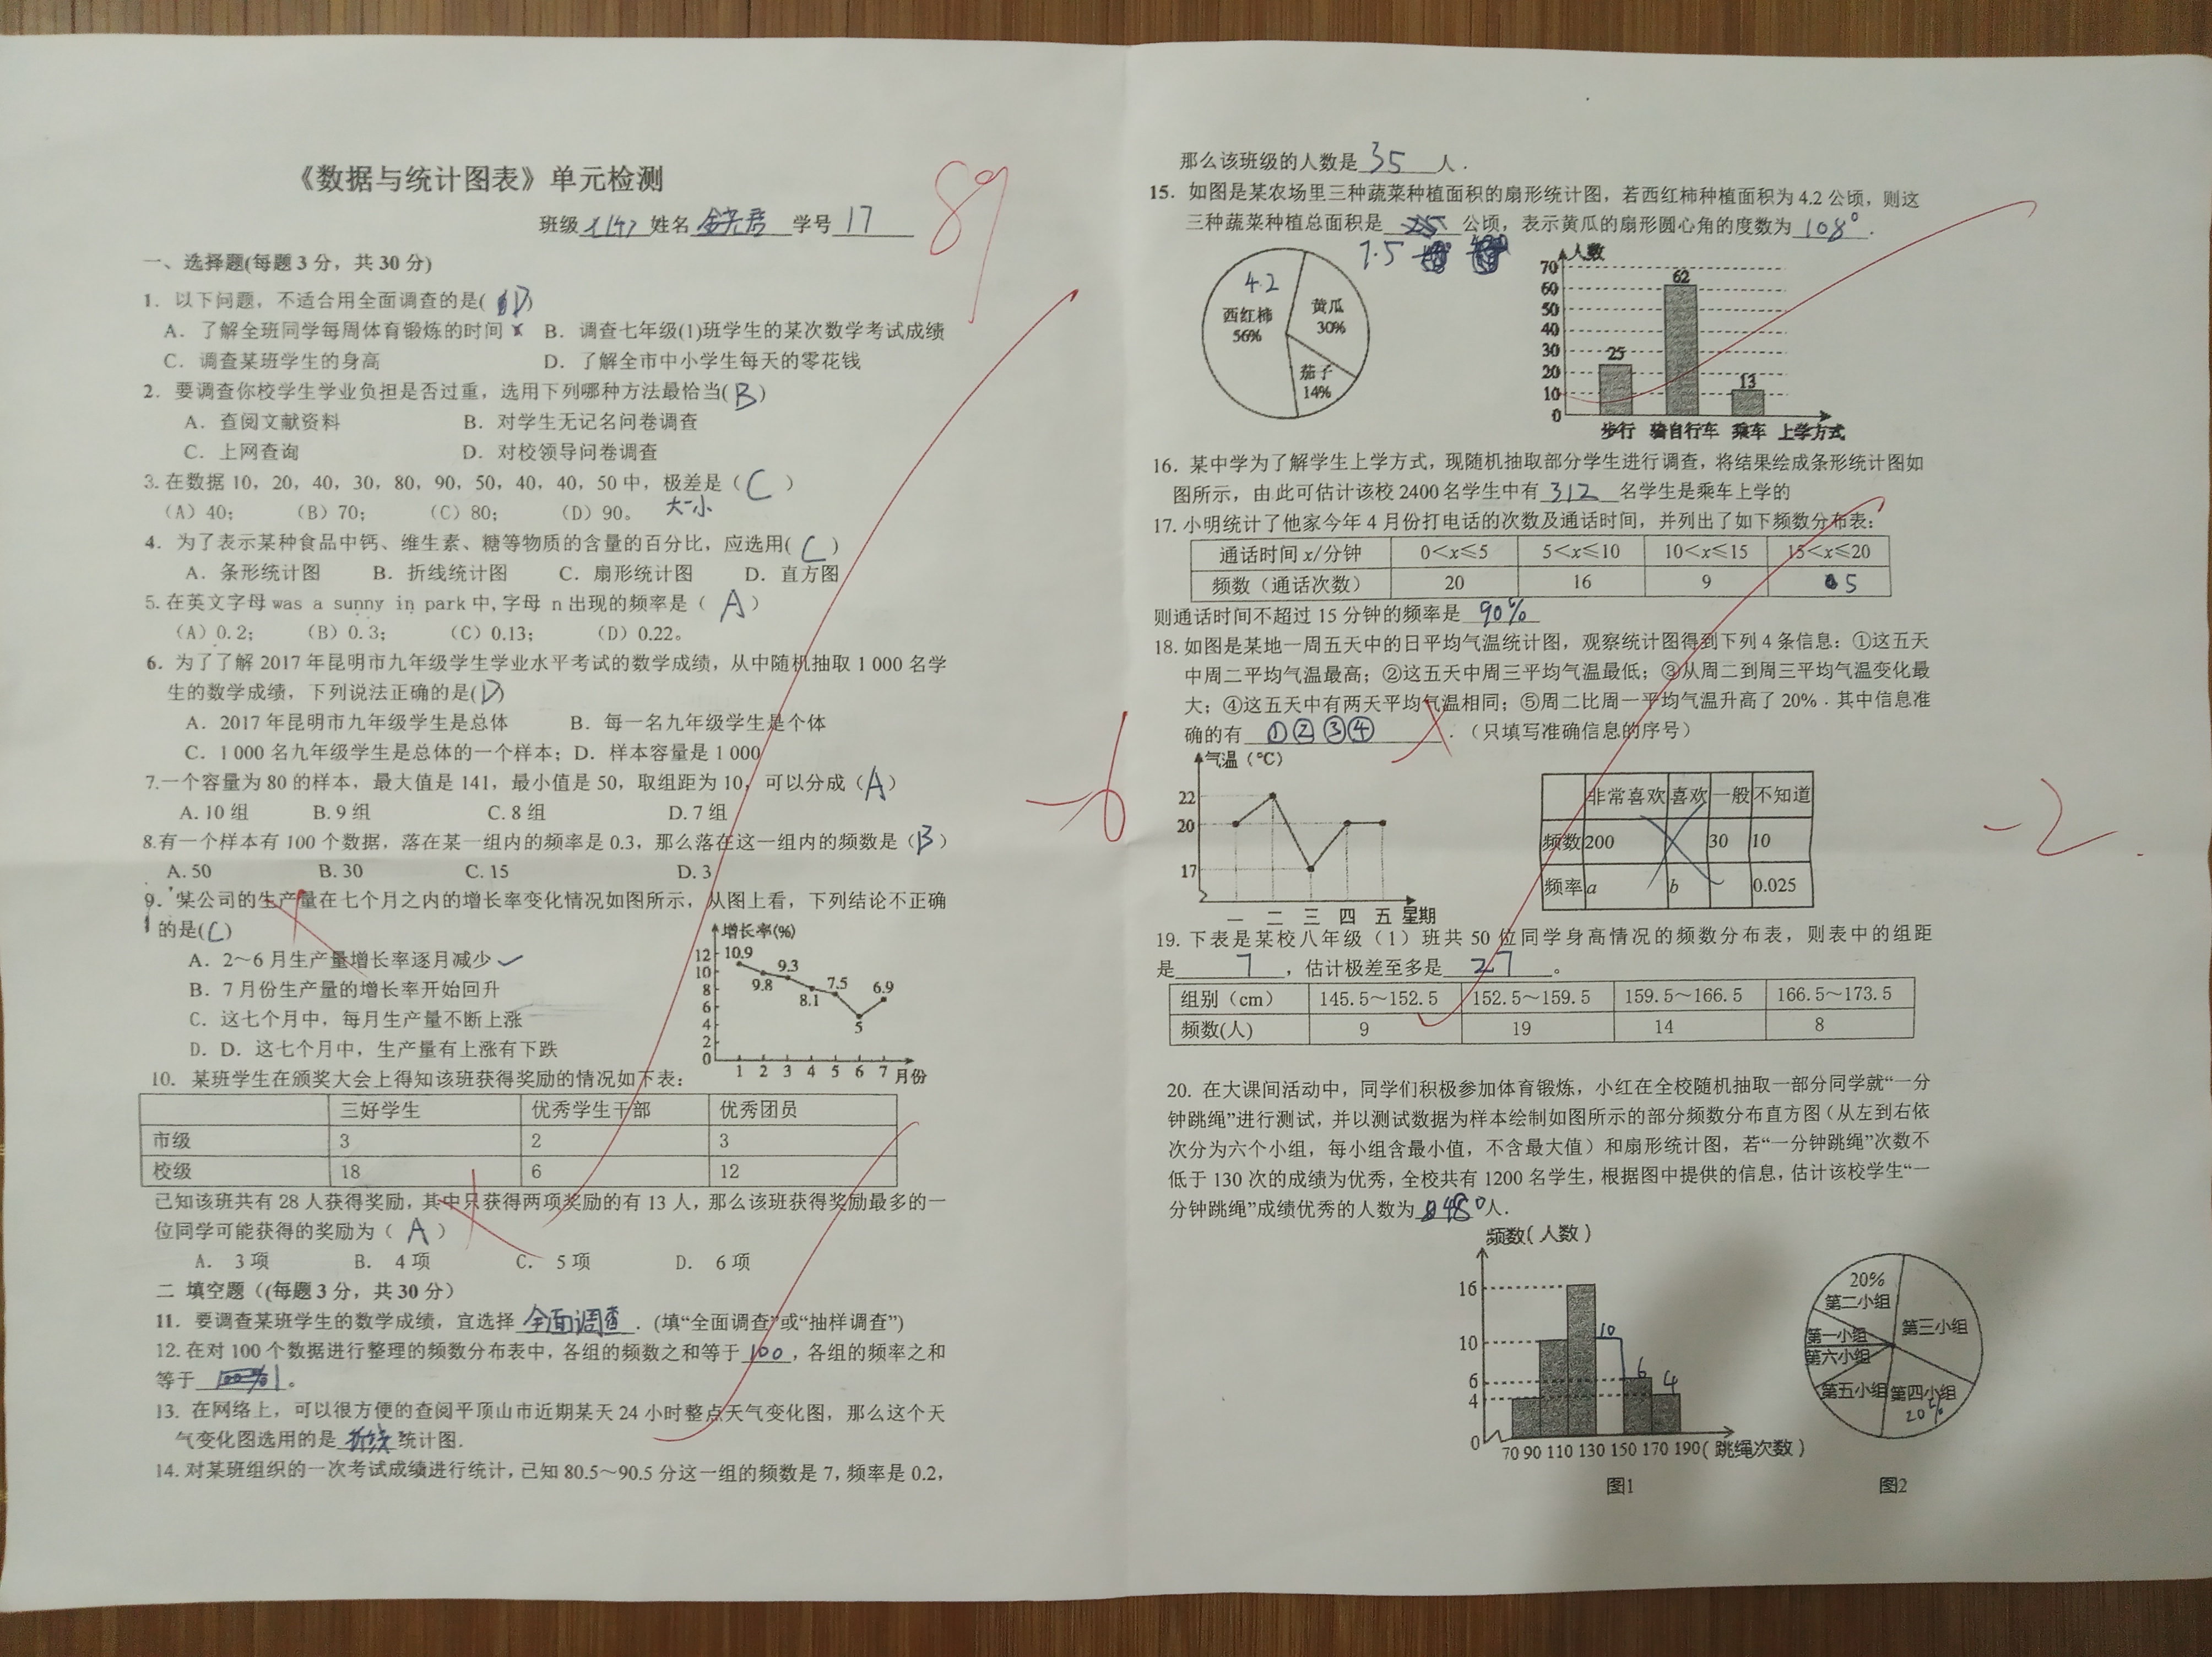 《数据与统计图表》单元检测
89
班级 姓名 学号17
一、选择题(每题3分，共30分)
1. 以下问题，不适合用全面调查的是(D)
A. 了解全班同学每周体育锻炼的时间 B. 调查七年级(1)班学生的某次数学考试成绩
C. 调查某班学生的身高 D. 了解全市中小学生每天的零花钱
2. 要调查你校学生学业负担是否过重，选用下列哪种方法最恰当(B)
A. 查阅文献资料 B. 对学生无记名问卷调查
C. 上网查询 D. 对校领导问卷调查
3. 在数据10，20，40，30，80，90，50，40，40，50中，极差是（C）
(A) 40; (B) 70; (C) 80; (D) 90。 大-小
4. 为了表示某种食品中钙、维生素、糖等物质的含量的百分比，应选用(C)
A. 条形统计图 B. 折线统计图 C. 扇形统计图 D. 直方图
5. 在英文字母 was a sunny in park 中,字母 n 出现的频率是（A）
(A) 0.2; (B) 0.3; (C) 0.13; (D) 0.22。
6. 为了了解2017年昆明市九年级学生学业水平考试的数学成绩，从中随机抽取1 000名学
生的数学成绩，下列说法正确的是(D)
A. 2017年昆明市九年级学生是总体 B. 每一名九年级学生是个体
C. 1 000名九年级学生是总体的一个样本；D. 样本容量是1 000
7.一个容量为80的样本，最大值是141，最小值是50，取组距为10，可以分成（A）
A. 10组 B. 9组 C. 8组 D. 7组
8.有一个样本有100个数据，落在某一组内的频率是0.3，那么落在这一组内的频数是（B）
A. 50 B. 30 C. 15 D. 3
9. 某公司的生产量在七个月之内的增长率变化情况如图所示，从图上看，下列结论不正确
的是(C)
A. 2～6月生产量增长率逐月减少
B. 7月份生产量的增长率开始回升
C. 这七个月中，每月生产量不断上涨
D. D. 这七个月中，生产量有上涨有下跌
增长率(%)
12 10 8 6 4 2 0
10.9 9.8 9.3 8.1 7.5 5 6.9
1 2 3 4 5 6 7 月份
10. 某班学生在颁奖大会上得知该班获得奖励的情况如下表：
三好学生 优秀学生干部 优秀团员
市级 3 2 3
校级 18 6 12
已知该班共有28人获得奖励，其中只获得两项奖励的有13人，那么该班获得奖励最多的一
位同学可能获得的奖励为（A）
A. 3项 B. 4项 C. 5项 D. 6项
-6
二 填空题（(每题3分，共30分）
11. 要调查某班学生的数学成绩，宜选择 全面调查 . (填“全面调查”或“抽样调查”)
12. 在对100个数据进行整理的频数分布表中，各组的频数之和等于 100 ，各组的频率之和
等于 1 。
13. 在网络上，可以很方便的查阅平顶山市近期某天24小时整点天气变化图，那么这个天
气变化图选用的是 折线 统计图.
14. 对某班组织的一次考试成绩进行统计，已知80.5～90.5分这一组的频数是7，频率是0.2，
那么该班级的人数是 35 人.
15. 如图是某农场里三种蔬菜种植面积的扇形统计图，若西红柿种植面积为4.2公顷，则这
三种蔬菜种植总面积是 公顷，表示黄瓜的扇形圆心角的度数为 108° .
7.5
4.2
西红柿
56%
黄瓜
30%
茄子
14%
人数
70 60 50 40 30 20 10 0
25 62 13
步行 骑自行车 乘车 上学方式
16. 某中学为了解学生上学方式，现随机抽取部分学生进行调查，将结果绘成条形统计图如
图所示，由此可估计该校2400名学生中有 312 名学生是乘车上学的
17. 小明统计了他家今年4月份打电话的次数及通话时间，并列出了如下频数分布表：
通话时间x/分钟 0<x≤5 5<x≤10 10<x≤15 15<x≤20
频数（通话次数） 20 16 9 5
则通话时间不超过15分钟的频率是 90%
18. 如图是某地一周五天中的日平均气温统计图，观察统计图得到下列4条信息：①这五天
中周二平均气温最高；②这五天中周三平均气温最低；③从周二到周三平均气温变化最
大；④这五天中有两天平均气温相同；⑤周二比周一平均气温升高了20%．其中信息准
确的有 ①②③④ ．（只填写准确信息的序号）
气温（℃）
22 20 17
一 二 三 四 五 星期
非常喜欢 喜欢 一般 不知道
频数 200 30 10
频率 a b 0.025
-2
19. 下表是某校八年级（1）班共50位同学身高情况的频数分布表，则表中的组距
是 7 ，估计极差至多是 27 。
组别（cm） 145.5～152.5 152.5～159.5 159.5～166.5 166.5～173.5
频数(人) 9 19 14 8
20. 在大课间活动中，同学们积极参加体育锻炼，小红在全校随机抽取一部分同学就“一分
钟跳绳”进行测试，并以测试数据为样本绘制如图所示的部分频数分布直方图（从左到右依
次分为六个小组，每小组含最小值，不含最大值）和扇形统计图，若“一分钟跳绳”次数不
低于130次的成绩为优秀，全校共有1200名学生，根据图中提供的信息，估计该校学生“一
分钟跳绳”成绩优秀的人数为 480 人.
频数（人数）
16 10 6 4 0
10 6 4
70 90 110 130 150 170 190（跳绳次数）
图1
20%
第二小组
第三小组
第一小组
第六小组
第五小组
第四小组
20%
图2